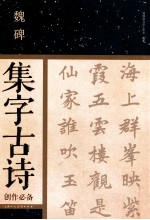 魏碑
集字古诗
创作必备
海上群峰映紫
霞五云楼观是
仙家谁吹玉笛